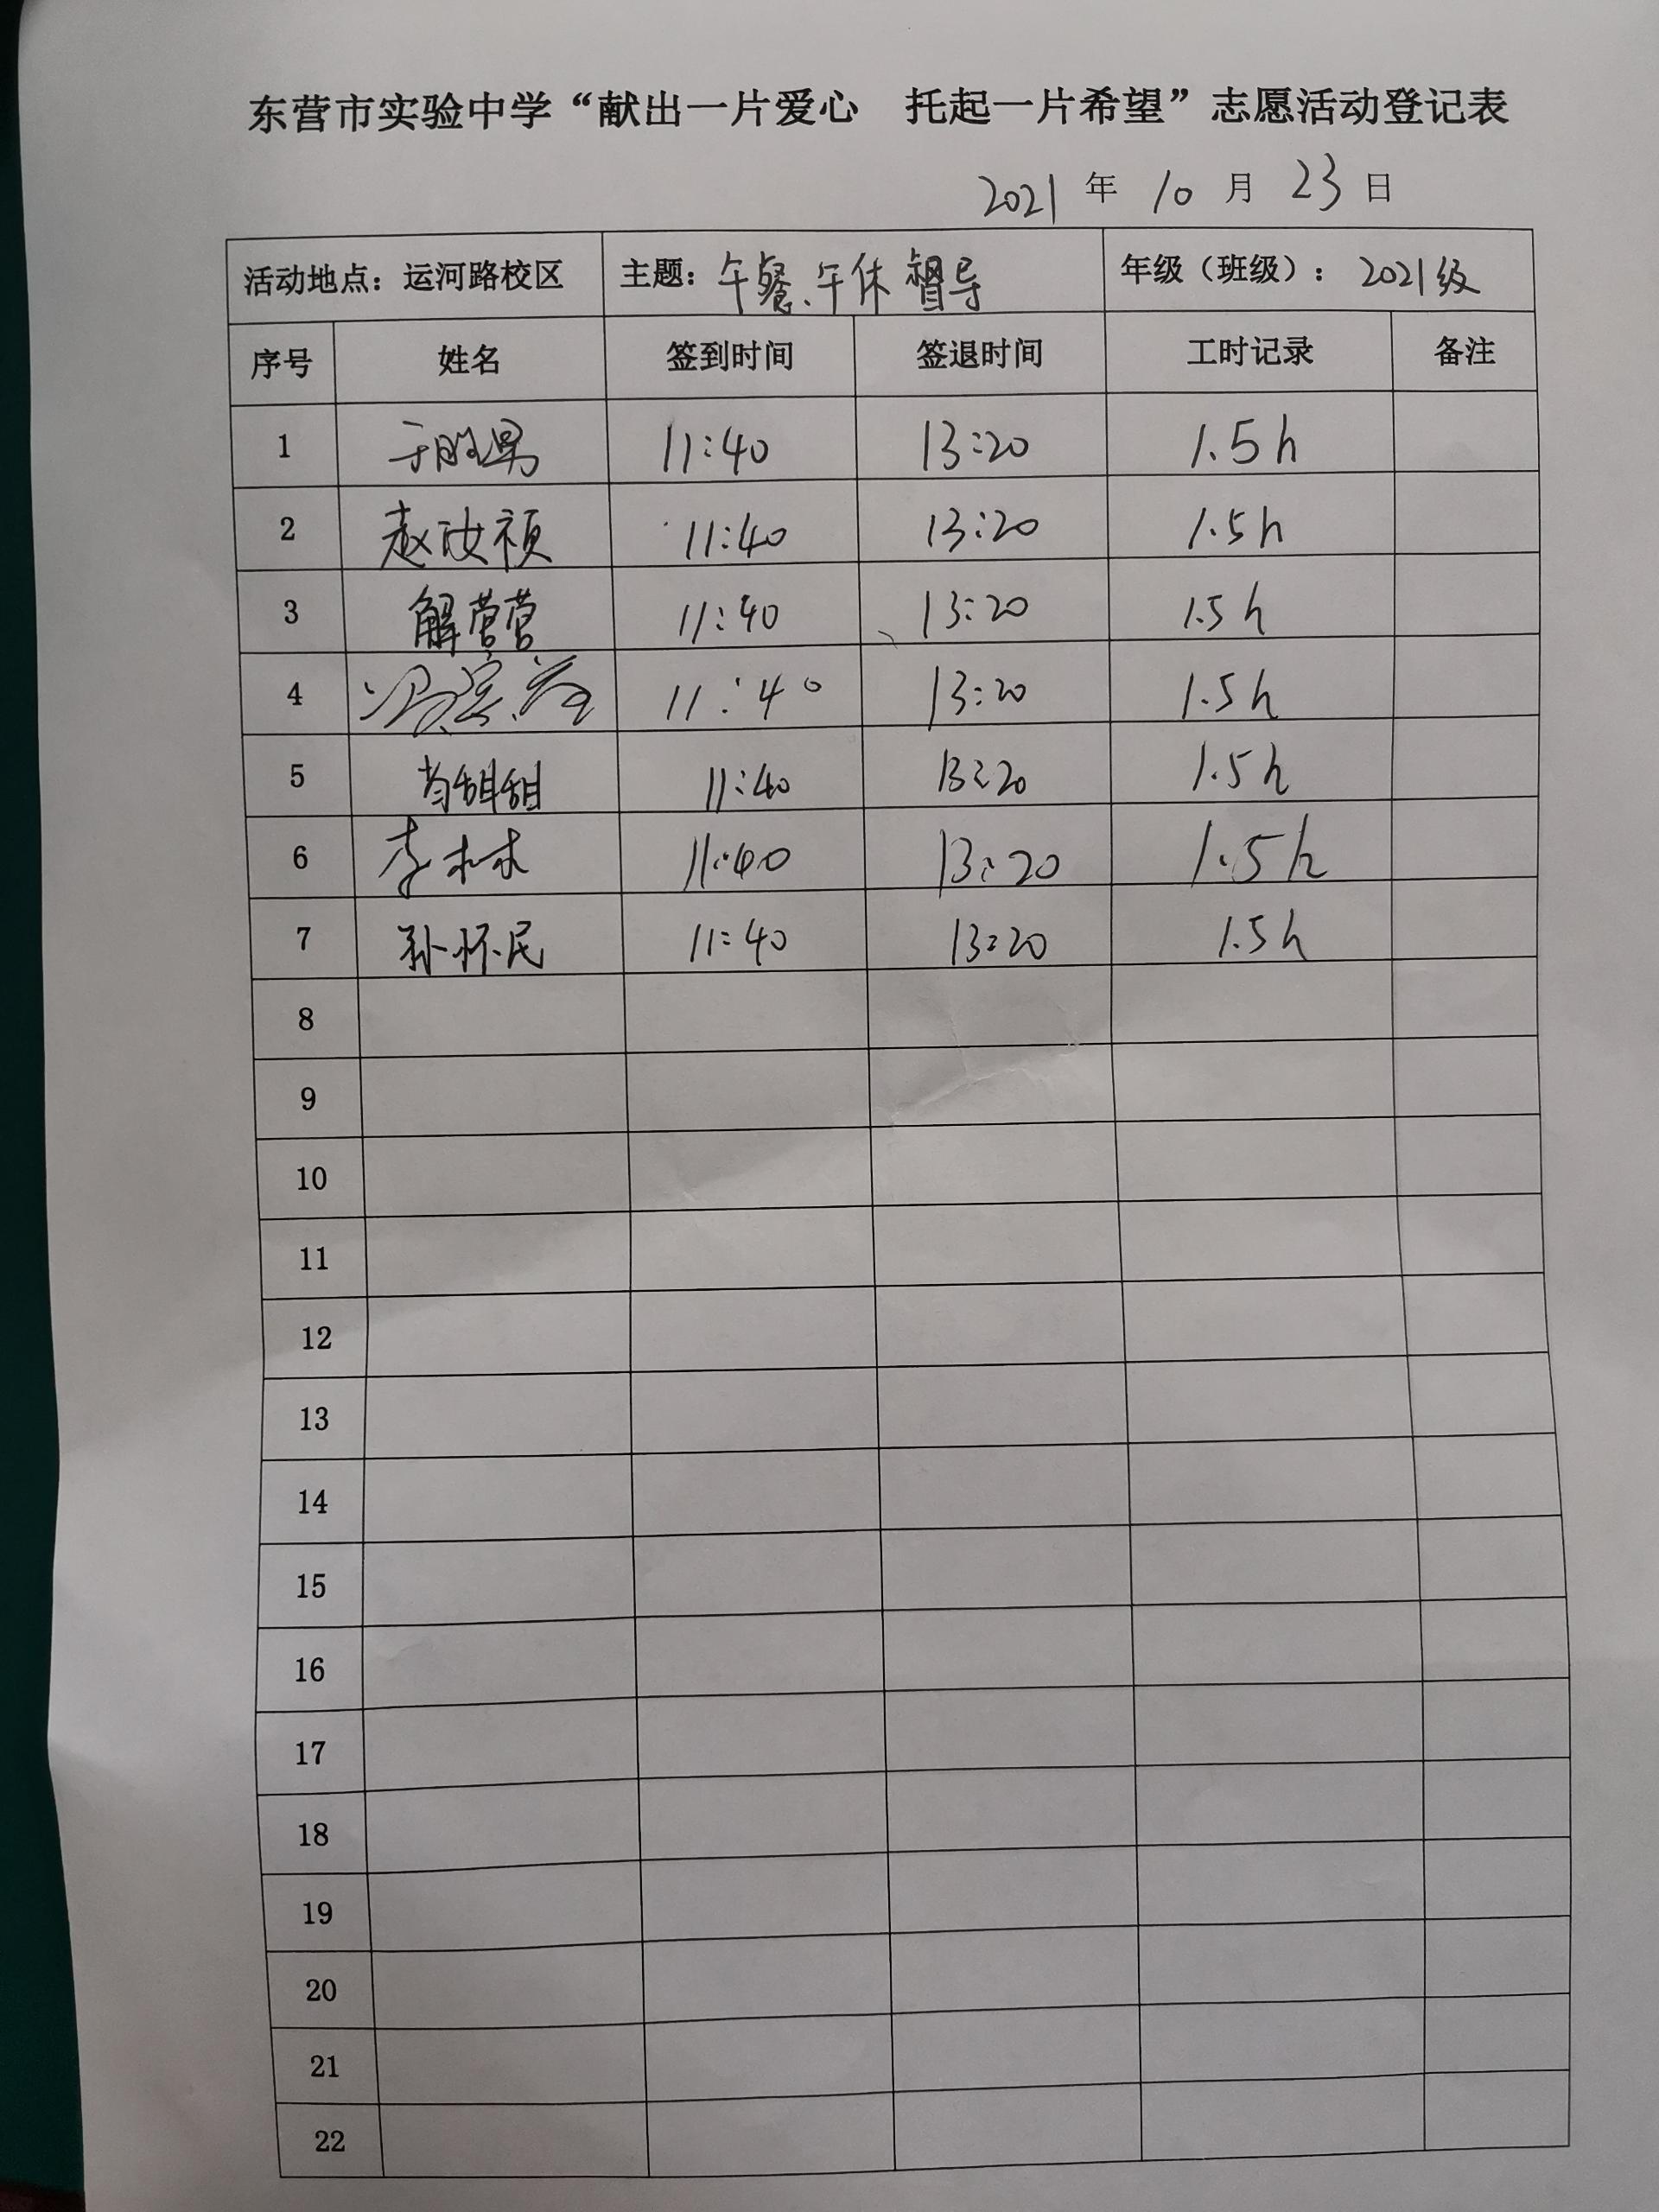 东营市实验中学“献出一片爱心 托起一片希望”志愿活动登记表
2021 年 10 月 23 日
活动地点：运河路校区 主题：午餐、午休督导 年级（班级）：2021级
序号 姓名 签到时间 签退时间 工时记录 备注
1 于胜男 11:40 13:20 1.5h
2 赵汝祯 11:40 13:20 1.5h
3 解营营 11:40 13:20 1.5h
4 11:40 13:20 1.5h
5 肖甜甜 11:40 13:20 1.5h
6 李林 11:40 13:20 1.5h
7 孙怀民 11:40 13:20 1.5h
8
9
10
11
12
13
14
15
16
17
18
19
20
21
22